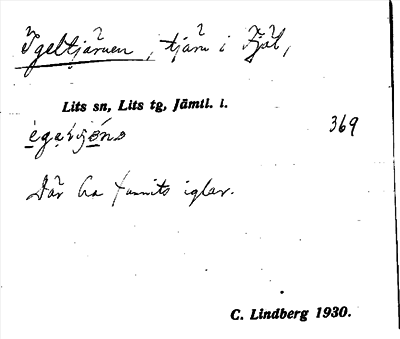 Igeltjärnen, tjärn i Fjäl,
Lits sn, Lits tg, Jämtl. l.
369
Där ha funnits iglar.
C. Lindberg 1930.